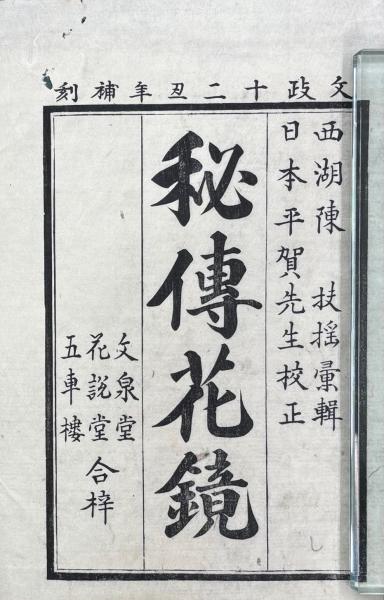 文政十二丑年補刻
西湖陳扶揺彙輯
日本平賀先生校正
秘傳花鏡
文泉堂
花說堂合梓
五車樓